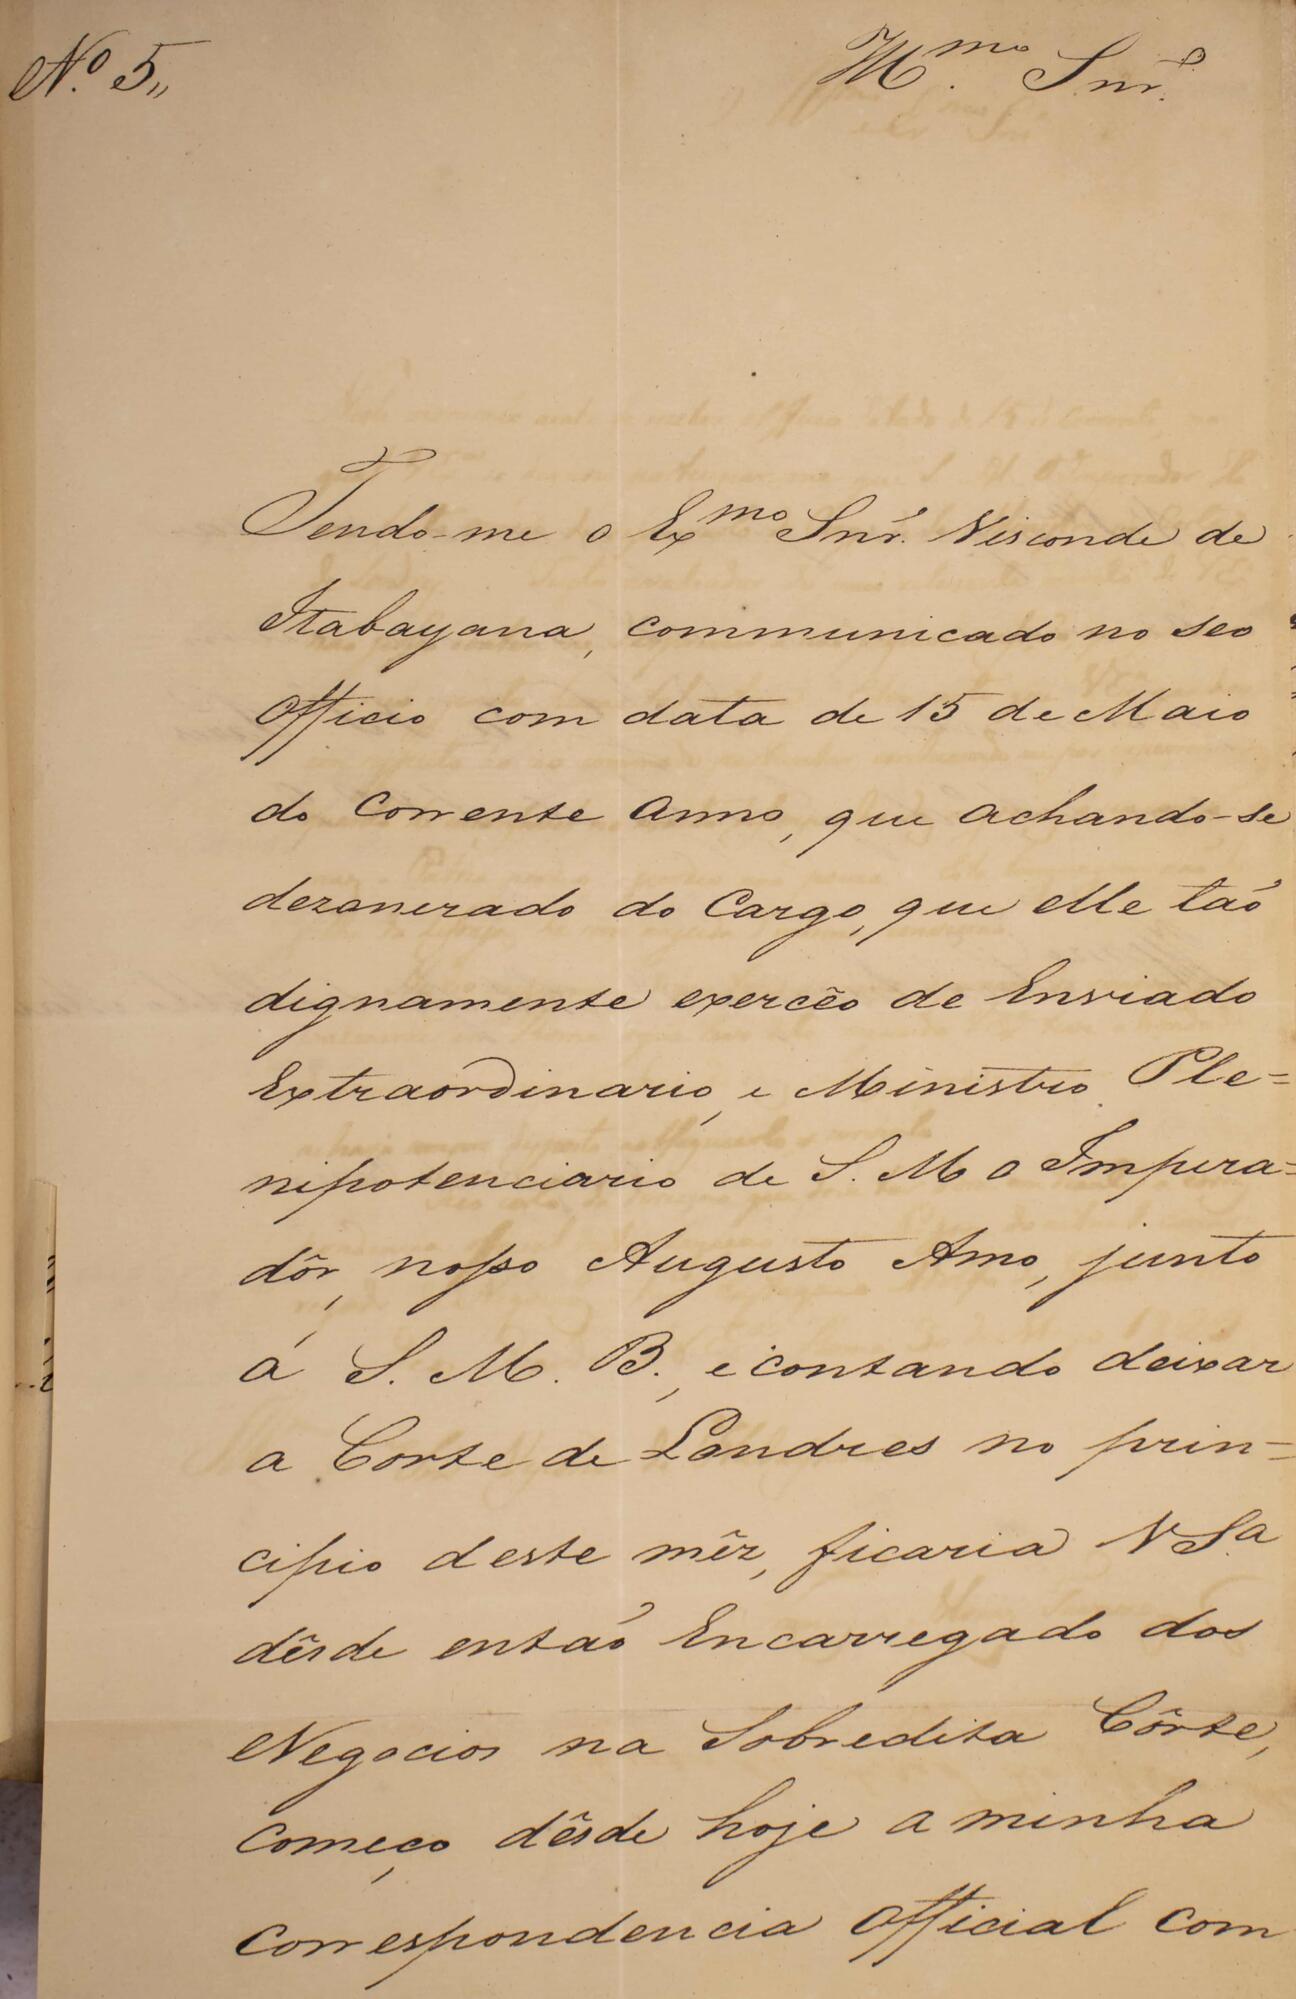 Nº. 5,,
Illmo. Snr.
Tendo-me o Exmo Snr. Visconde de
Itabayana, communicado no seo
Officio com data de 15 de Maio
do Corrente Anno, que achando-se
dezonerado do Cargo, que elle táo
dignamente exercêo de Enviado
Extraordinario, e Ministro Ple=
nipotenciario de S. M. o Impera=
dôr, nosso Augusto Amo, junto
á S. M. B., e contando deixar
a Corte de Londres no prin=
cipio deste mêz, ficaria V Sa
dêsde entáo Encarregado dos
Negocios na Sobredita Côrte,
começo dêsde hoje a minha
correspondencia Official com